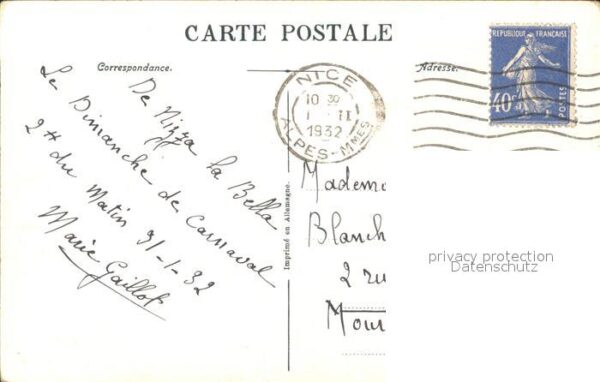 CARTE POSTALE
Correspondance.
Adresse.
De Nizza la Bella
Le Dimanche de Carnaval
2 h du Matin 31-1-32
Marie Gaillot
Imprimé en Allemagne.
NICE
10 30
1 - II
1932
ALPES-MMES
REPUBLIQUE FRANÇAISE
POSTES
40 c
Madem
Blanch
2 ru
Mou
privacy protection
Datenschutz